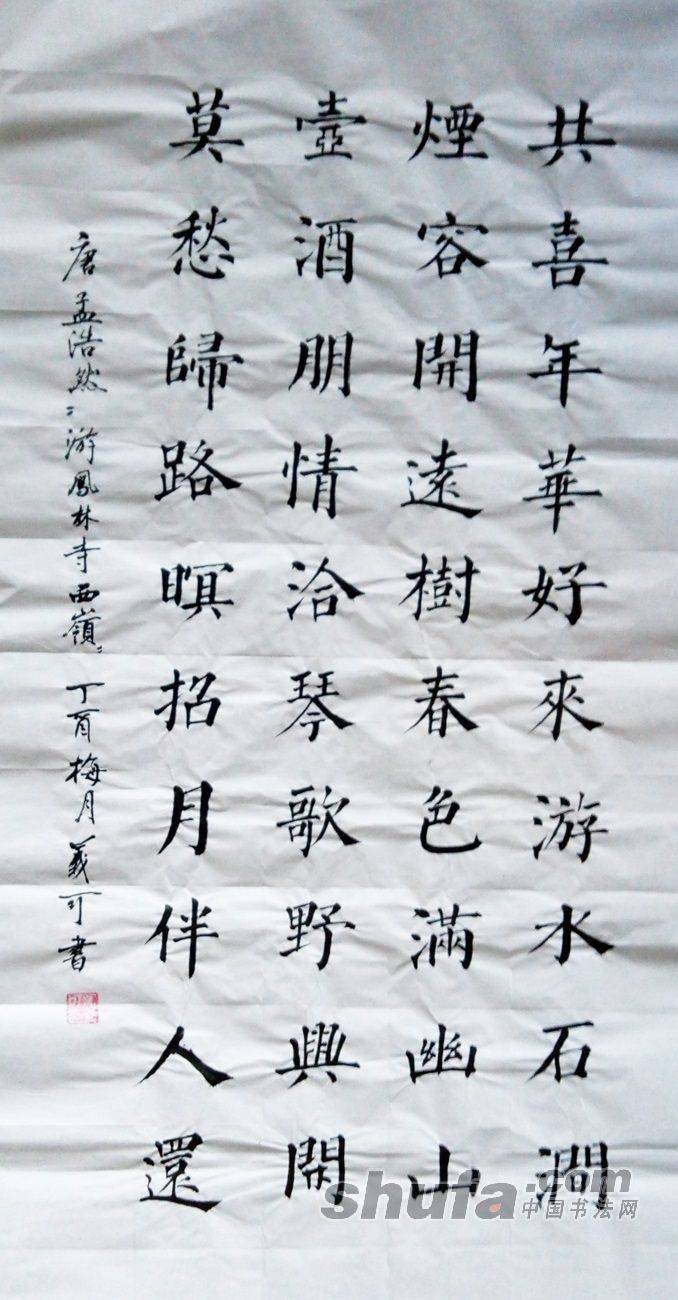 共喜年華好來游水石澗
煙容開遠樹春色滿幽山
壺酒朋情洽琴歌野興閑
莫愁歸路暝招月伴人還
唐孟浩然游鳳林寺西嶺丁酉梅月義可書
shufa.com
中国书法网